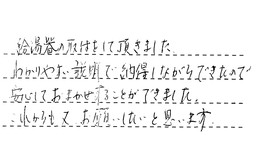 給湯器の取付をして頂きました
わかりやすい説明で納得しながらできたので
安心しておまかせすることができました。
これからも お願いしたいと思います。